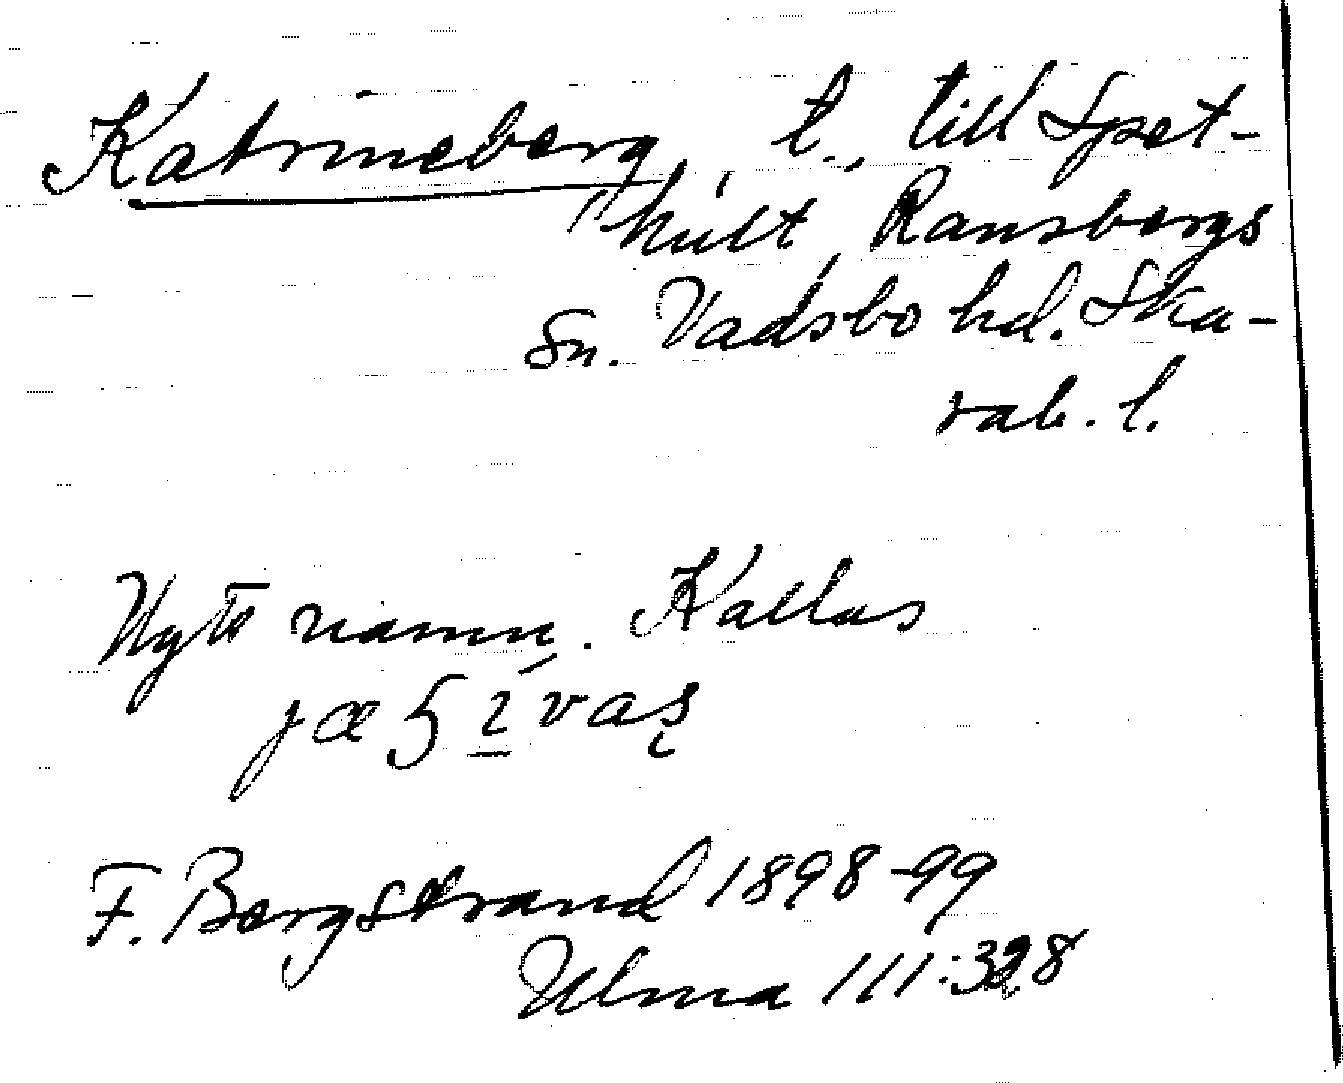 Katrineberg, t., till Spet-
hult, Ransbergs
sn. Vadsbo hd. Ska-
rab. l.
Nytt namn. Kallas
F. Bergstrand 1898-99
Ulma 111:328